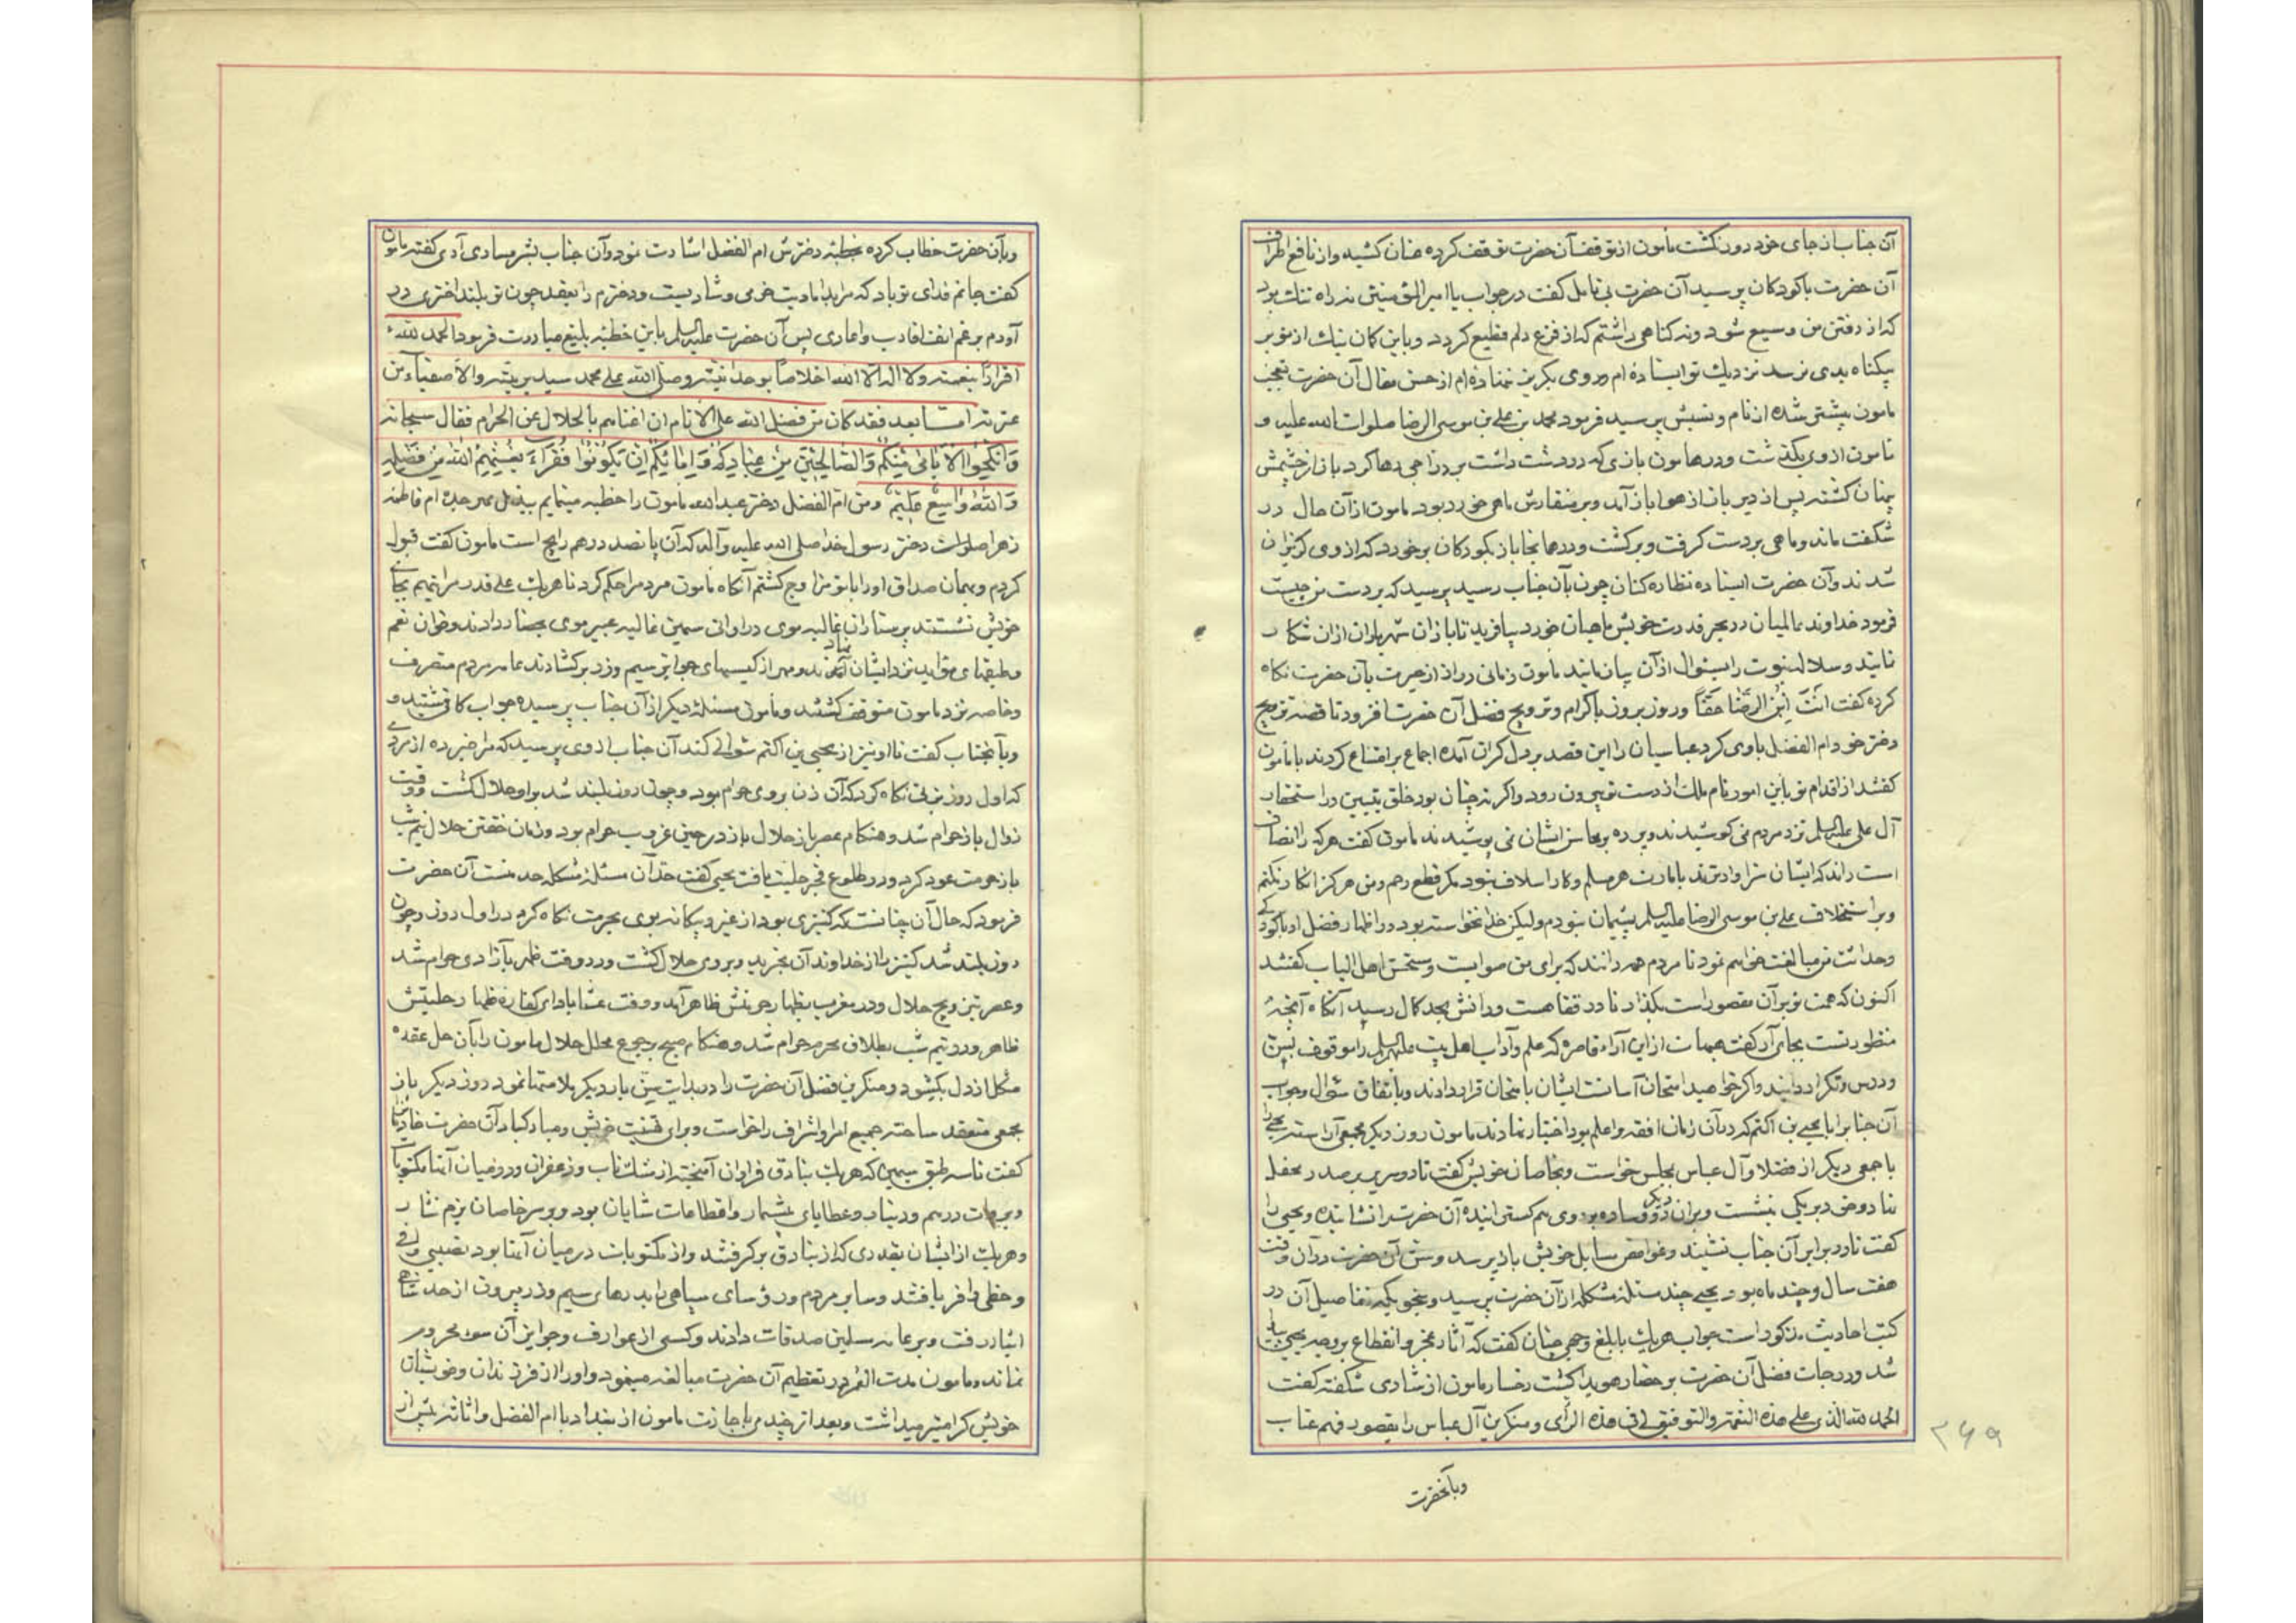 آن جناب از جای خود دور نکشت مأمون از توقف آن حضرت توقف کرده عنان کشیده واز تدافع اطراف
آن حضرت باکودکان پرسید آن حضرت بی تامل کفت در جواب یا امیر المؤمنین نه راه تنک بود
که از رفتن من وسیع شود ونه کناهی داشتم که از فزع دلم فظیع کردد وباین کمان نیک از تو بر
بیکناه بدی نرسد نزدیک تو ایستاده ام وروی بکریز ننهاده ام از حسن مقال آن حضرت تعجب
مامون بیشتر شده از نام ونسبش پرسید فرمود محمد بن علی بن موسی الرضا صلوات الله علیه و
مامون از وی بکذشت ودر هامون بازی که در دست داشت بر دراجی رها کرد باز از چشمش
پنهان کشته پس از دیر باز از هوا باز آمد وبر منقارش ماهی خورد بود مامون از آن حال در
شکفت ماند وماهی بر دست کرفت وبرکشت ودر همانجا باز بکودکان برخورد که از وی کریزان
شدند وآن حضرت ایستاده نظاره کنان چون بآن جناب رسید پرسید که بر دست من چیست
فرمود خداوند عالمیان در بحر قدرت خویش ماهیان خورد بیافرید تا بازان شهریاران ازان شکار
نمایند وسلاله نبوت را بسئوال از آن بیازمایند مأمون زمانی دراز از حیرت بآن حضرت نکاه
کرده کفت اَنْتَ اِبْنُ الرِّضَا حَقّاً وروز بروز باکرام وترویج فضل آن حضرت افزود تا قصه تزویج
دختر خود ام الفضل باوی کرد عباسیان را این قصد بر دل کران آمده اجماع بر امتناع کردند بامأمون
کفتند از اقدام تو باین امور نام ملک از دست تو بیرون رود واکر نه چنان بود خلق پیشین در استحقار
آل علی علیه السلم نزد مردم نمی کوشیدند وپرده بر محاسن ایشان نمی پوشیدند مأمون کفت هر که را انصاف
است داند که ایشان سزاوارترند بامارت هر مسلم وکار اسلاف نبود مکر قطع رحم ومن هرکز انکار نکنم
وبر استخلاف علی بن موسی الرضا علیه السلم پشیمان نبودم ولیکن خدا نخواسته بود ودر اظهار فضل او باکودکی
وحداثت سن مبالغت خواهم نمود تا مردم همه دانند که برای من صوابست ومستحسن اهل الباب کفتند
اکنون که همت تو بر آن مقصور است بکذار تا در فقاهت ودانش بحد کمال رسید آنکاه آنچه
منظور تست بجای آر کفت هیهات از این آراء قاصره که علم وآداب اهل بیت علیهم السلم را موقوف بسن
ودرس وتکرار دانید واکر خواهید امتحان آسانست ایشان بامتحان قرار دادند وباتفاق سئوال وجواب
آن جناب را با یحیی بن اکثم که در آن زمان افقه واعلم بود اختیار نمادند مامون روز دیکر مجمعی آراسته یحیی را
با جمعی دیکر از فضلا وآل عباس بمجلس خواست وبخاصان خویش کفت تا دو سریر بر صدر محفل
نهادند وخود بر یکی بنشست وبران دیکر دو وساده بر روی هم کسترانیده آن حضرت را نشانیده ویحیی را
کفت تا در برابر آن جناب نشیند وغوامض مسایل خویش باز پرسد وسن آن حضرت در آن وقت
هفت سال وچند ماه بود یحیی چند مسئله مشکله از آن حضرت پرسید وبنحویکه تفاصیل آن در
کتب احادیث مذکور است جواب هریک بابلغ وجهی چنان کفت که آثار عجز وانقطاع بر وجه یحیی
شد ودرجات فضل آن حضرت بر حضار هویدا کشت رخسار مامون از شادی شکفته کفت
الحمد لله الذی علی هذه النعمة والتوفیق لی فی هذه الرأی ومنکرین آل عباس را بقصور فهم عتاب
وبآنحضرت
۲۶۹
وبآن حضرت خطاب کرده بخطبه دخترش ام الفضل اشارت نمود وآن جناب بشرم سادی آری کفته مامون
کفت جانم فدای تو باد که مرا بدامادیت خرمی وشادیست ودخترم را بعقد چون تو بلند اختری در
آورم برغم انف اقارب واعادی پس آن حضرت علیه السلم باین خطبه بلیغ مبادرت فرمود الحمد لله
اقراراً بنعمته ولا اله الا الله اخلاصاً بوحدانیته وصلی الله علی محمد سید بریته والاصفیاء من
عترته اما بعد فقد کان من فضل الله علی الانام ان اغناهم بالحلال عن الحرام فقال سبحانه
وَاَنْکِحُوا الْاَیَامٰی مِنْکُمْ وَالصَّالِحِینَ مِنْ عِبَادِکُمْ وَاِمَائِکُمْ اِنْ یَکُونُوا فُقَرَاءَ یُغْنِهِمُ اللهُ مِنْ فَضْلِهِ
وَاللهُ وَاسِعٌ عَلِیمٌ ومن ام الفضل دختر عبد الله مامون را خطبه مینمایم ببذل مهر جده ام فاطمه
زهرا صلوات دختر رسول خدا صلی الله علیه وآله که آن پانصد درهم رایج است مامون کفت قبول
کردم وبهمان صداق او را باتو مزاوج کشتم آنکاه مأمون مردم را حکم کرد تا هریک علی قدر مراتبهم بجای
خویش نشستند پرستاران غالیه موی در اوانی سیمین غالیه عبیر بوی بحضار دادند وخوان نعم
وطبقهای موائد نزد ایشان نهادند ومهر از کیسهای جوایز سیم وزر برکشادند عامه مردم متصرف
وخاصه نزد مامون متوقف کشتند ومأمون مسئله دیکر از آن جناب پرسیده جواب کافی شنید و
وبآنجناب کفت تا او نیز از یحیی بن اکثم سئوالی کند آن جناب از وی پرسید که مرا خبر ده از مردی
که اول روز بزنی نکاه کرد که آن زن بر وی حرام بود وچون روز بلند شد بر او حلال کشت ووقت
زوال باز حرام شد وهنکام عصر باز حلال باز در حین غروب حرام بود وزمان خفتن حلال نیم شب
باز حرمت عود کرد ودر طلوع فجر حلیت یافت یحیی کفت حل آن مسئله مشکله حد منست آن حضرت
فرمود که حال آن چنانست که کنیزی بود از غیر وبیکانه بوی بحرمت نکاه کرد در اول روز وچون
روز بلند شد کنیز را از خداوند آن بخرید وبر وی حلال کشت ودر وقت ظهر بآزادی حرام شد
وعصر بتزویج حلال ودر مغرب بظهار حرمتش ظاهر آمد ووقت عشا بادای کفاره ظهار حلیتش
ظاهر ودر نیم شب بطلاق محرم حرام شد وهنکام صبح برجوع محلل حلال مامون را بآن حل عقده
مشکل از دل بکشود ومنکرین فضل آن حضرت را در بدایت سن بار دیکر بلامتها نمود روز دیکر باز
مجمعی منعقد ساخته جمیع امرا واشراف را خواست وبرای تهنیت خویش ومبارکباد آن حضرت
کفت تا سه طبق سیمین که هریک بنادق فراوان آمیخته از مشک ناب وزعفران ودر میان آنها مکتوبات
وبرات درهم ودینار وعطایای بیشمار واقطاعات شایان بود وبر سر خاصان بزم نثار
وهریک از ایشان بقدری که از بنادق برکرفتند واز مکتوبات در میان آنها بود نصیبی وافی
وحظی وافر یافتند وسایر مردم ورؤسای سپاهی را بدرهای سیم وزر بیرون از حد
ایثار رفت وبر عامه مسلمین صدقات دادند وکسی از عوارف وجوایز آن سور محروم
نماند ومامون مدت العمر در تعظیم آن حضرت مبالغه مینمود واو را از فرزندان وخویشان
خویش کرامیتر میداشت وبعد از چندی باجازت مامون از بغداد با ام الفضل واثاثه